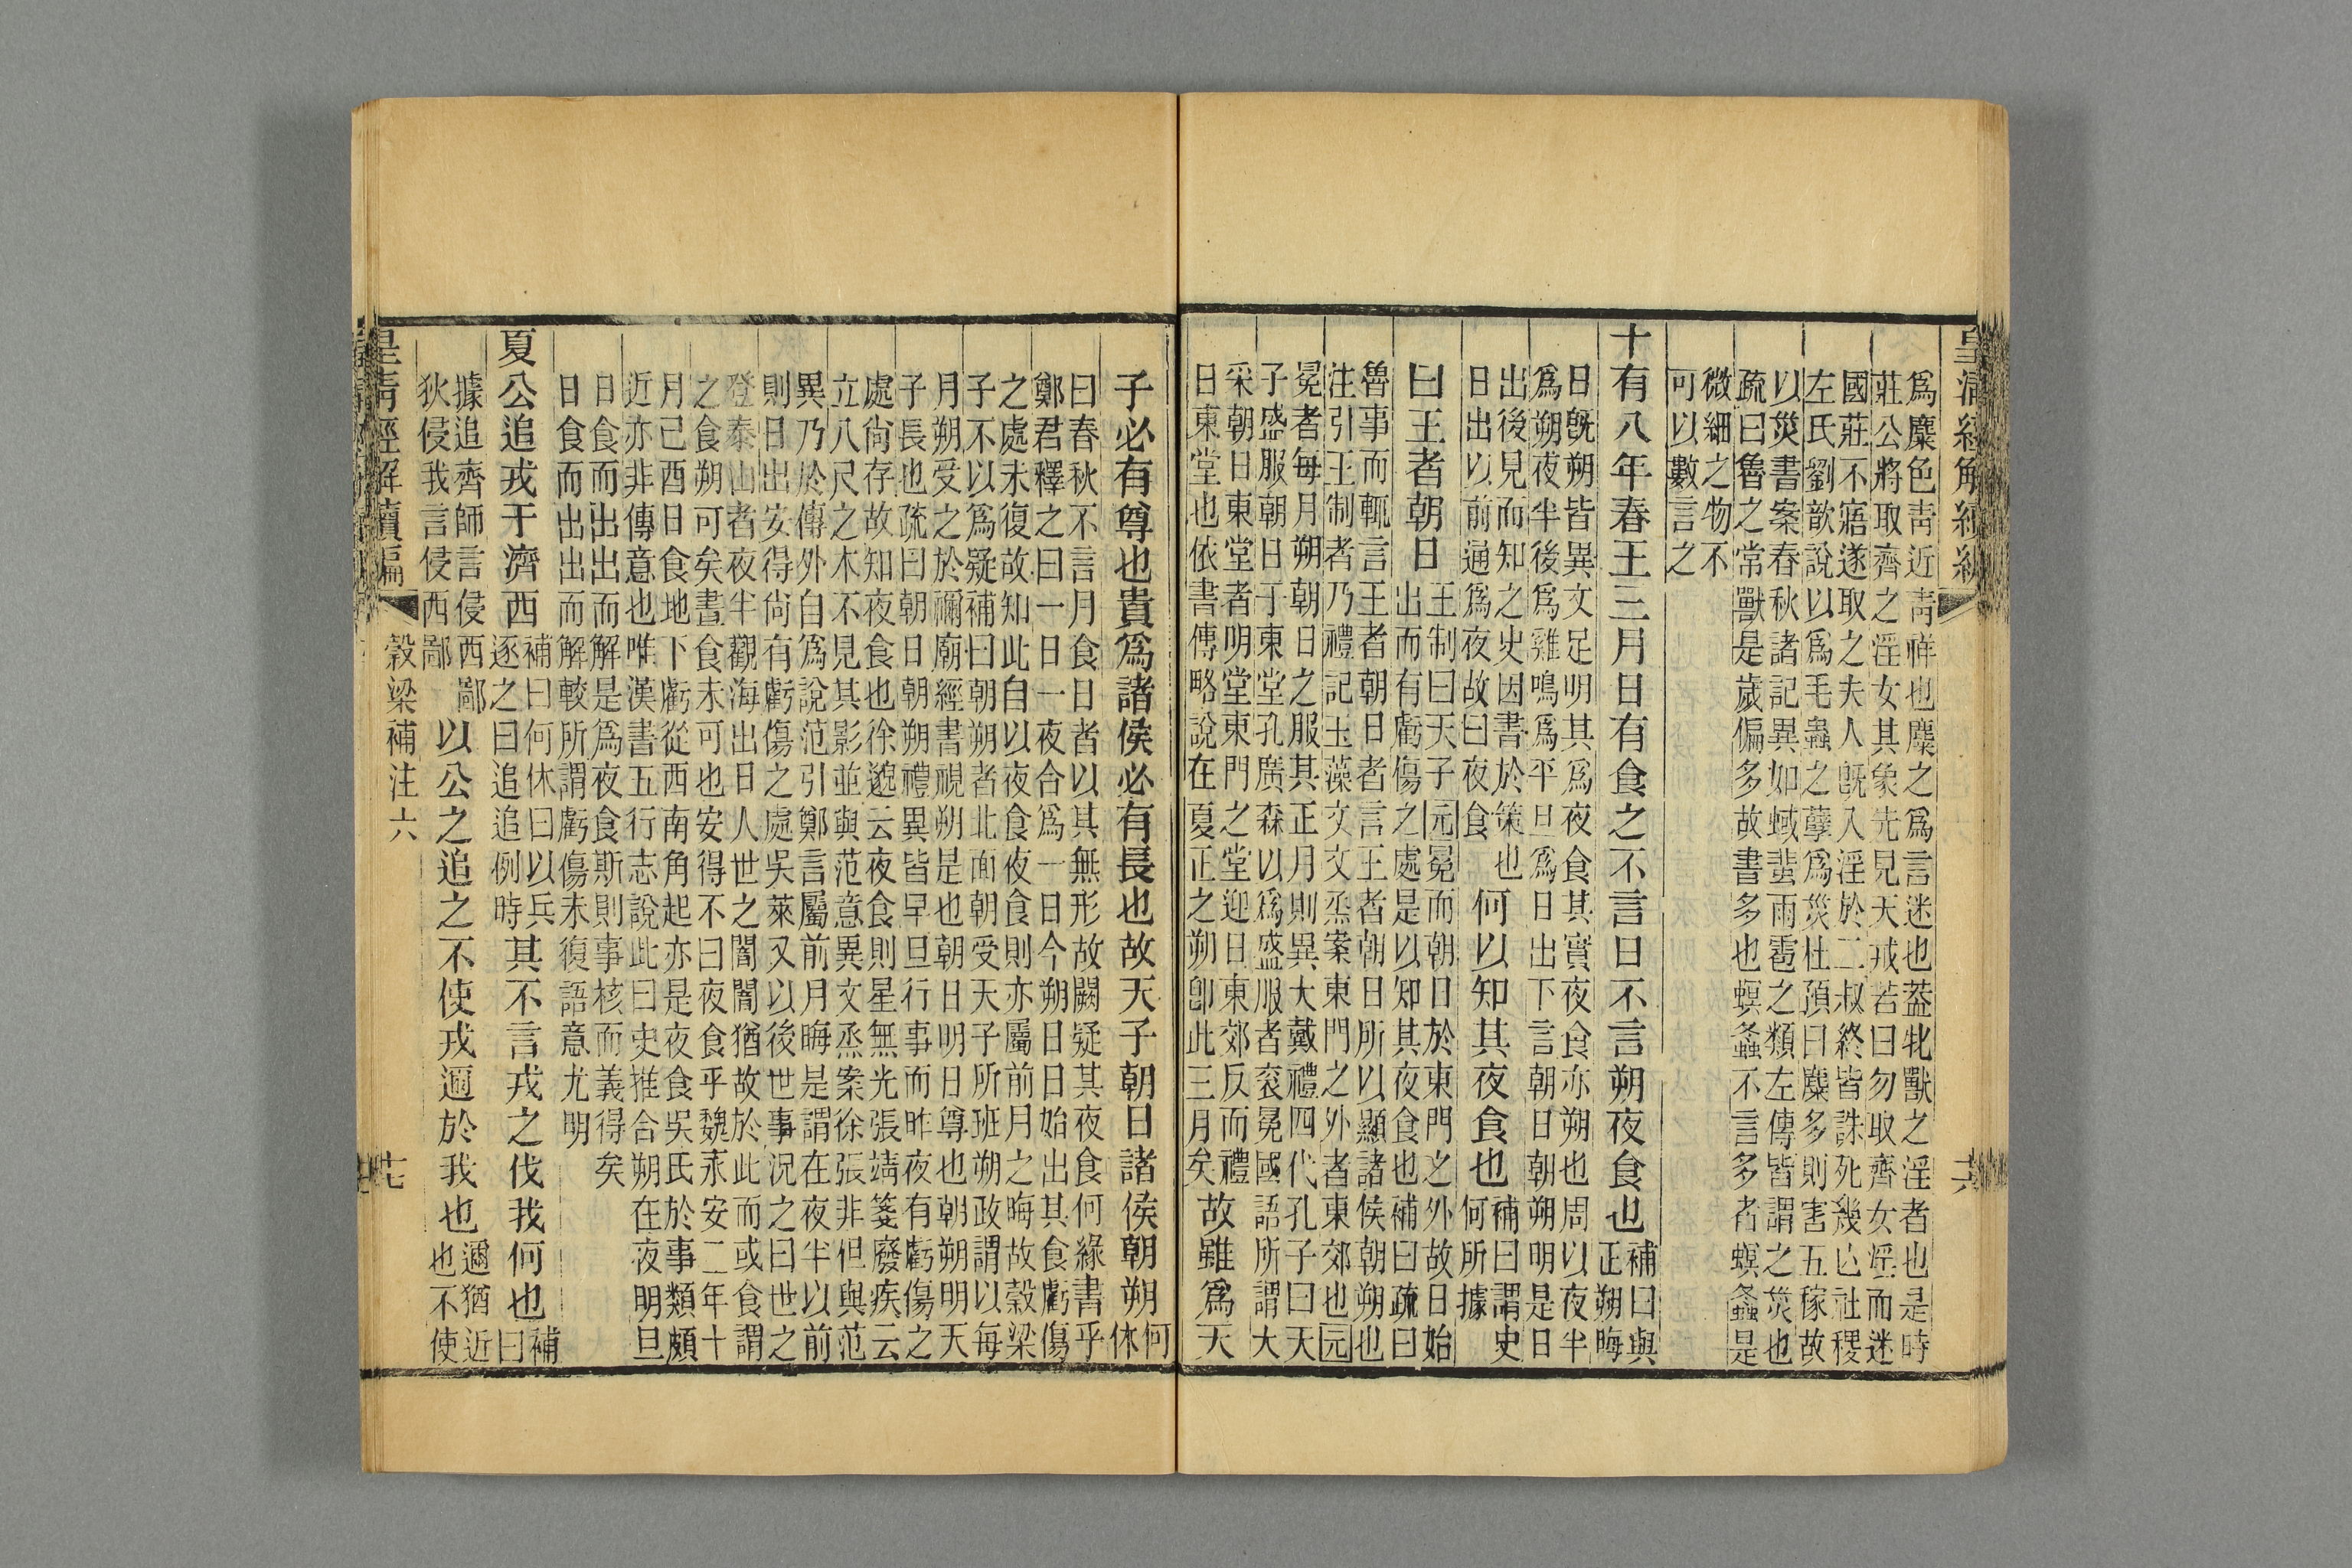 爲麋色靑近靑祥也麋之爲言迷也葢牝獸之淫者也是時
莊公將取齊之淫女其象先見天戒若曰勿取齊女淫而迷
國莊不寤遂取之夫人旣入淫於二叔終皆誅死幾亡社稷
左氏劉歆說以爲毛蟲之孽爲災杜預曰麋多則害五稼故
以災書案春秋諸記異如蜮蜚雨雹之類左傳皆謂之災也
疏曰魯之常獸是歲偏多故書多也螟螽不言多者螟螽是
微細之物不
可以數言之
十有八年春王三月日有食之不言日不言朔夜食也
補曰與
正朔晦
日旣朔皆異文足明其爲夜食其實夜食亦朔也周以夜半
爲朔夜半後爲雞鳴爲平旦爲日出下言朝日朝朔明是日
出後見而知之史因書於策也
日出以前通爲夜故曰夜食
何以知其夜食也
補曰謂史
何所據
曰王者朝日
王制曰天子元冕而朝日於東門之外故日始
出而有虧傷之處是以知其夜食也補曰疏曰
魯事而輒言王者朝日者言王者朝日所以顯諸侯朝朔也
注引王制者乃禮記玉藻文文烝案東門之外者東郊也元
冕者每月朔朝日之服其正月則異大戴禮四代孔子曰天
子盛服朝日于東堂孔廣森以爲盛服者袞冕國語所謂大
采朝日東堂者明堂東門之堂迎日東郊反而禮
日東堂也依書傳略說在夏正之朔卽此三月矣
故雖爲天
子必有尊也貴爲諸侯必有長也故天子朝日諸侯朝朔
何
休
曰春秋不言月食日者以其無形故闕疑其夜食何緣書乎
鄭君釋之曰一日一夜合爲一日今朔日日始出其食虧傷
之處未復故知此自以夜食夜食則亦屬前月之晦故穀梁
子不以爲疑補曰朝朔者北面朝受天子所班朔政謂以每
月朔受之於禰廟經書視朔是也朝日明日尊也朝朔明天
子長也疏曰朝日朝朔禮異皆早旦行事而昨夜有虧傷之
處尙存故知夜食也徐邈云夜食則星無光張靖箋廢疾云
立八尺之木不見其影並與范意異文烝案徐張非但與范
異乃於傳外自爲說范引鄭言屬前月晦是謂在夜半以前
則日出安得尙有虧傷之處吳萊又以後世事況之曰世之
登泰山者夜半觀海出日人世之闇闇猶故於此而或食謂
之食朔可矣書食未可也安得不曰夜食乎魏永安二年十
月己酉日食地下虧從西南角起亦是夜食吳氏於事類頗
近亦非傳意也唯漢書五行志說此曰史推合朔在夜明旦
日食而出出而解是爲夜食斯則事核而義得矣
日食而出出而解較所謂虧傷未復語意尤明
夏公追戎于濟西
補曰何休曰以兵
逐之曰追追例時
其不言戎之伐我何也
補
曰
據追齊師言侵西鄙
狄侵我言侵西鄙
以公之追之不使戎邇於我也
邇猶近
也不使
穀梁補注六